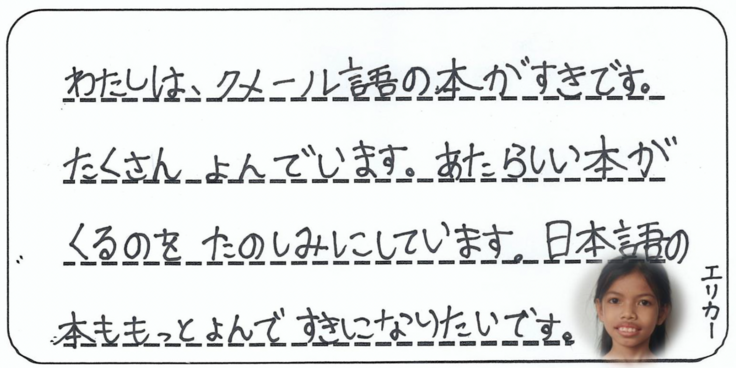 わたしは、クメール語の本がすきです。
たくさん よんでいます。あたらしい本が
くるのを たのしみにしています。日本語の
本ももっとよんで すきになりたいです。
エリカー